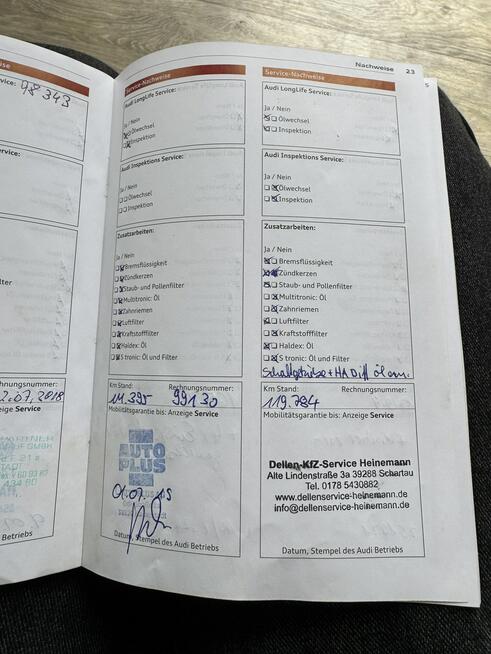 Nachweise 23
98 343
2.07.2018
Service-Nachweise
Audi LongLife Service:
Ja / Nein
Ölwechsel
Inspektion
Audi Inspektions Service:
Ja / Nein
Ölwechsel
Inspektion
Zusatzarbeiten:
Ja / Nein
Bremsflüssigkeit
Zündkerzen
Staub- und Pollenfilter
Multitronic: Öl
Zahnriemen
Luftfilter
Kraftstofffilter
Haldex: Öl
S tronic: Öl und Filter
Km Stand: Rechnungsnummer:
111.395 99130
Mobilitätsgarantie bis: Anzeige Service
AUTO
PLUS
Datum, Stempel des Audi Betriebs
Service-Nachweise
Audi LongLife Service:
Ja / Nein
Ölwechsel
Inspektion
Audi Inspektions Service:
Ja / Nein
Ölwechsel
Inspektion
Zusatzarbeiten:
Ja / Nein
Bremsflüssigkeit
Zündkerzen
Staub- und Pollenfilter
Multitronic: Öl
Zahnriemen
Luftfilter
Kraftstofffilter
Haldex: Öl
S tronic: Öl und Filter
Schaltgetriebe + HA Diff Öl ern.
Km Stand: Rechnungsnummer:
119.784
Mobilitätsgarantie bis: Anzeige Service
Dellen-KfZ-Service Heinemann
Alte Lindenstraße 3a 39288 Schartau
Tel. 0178 5430882
www.dellenservice-heinemann.de
info@dellenservice-heinemann.de
Datum, Stempel des Audi Betriebs